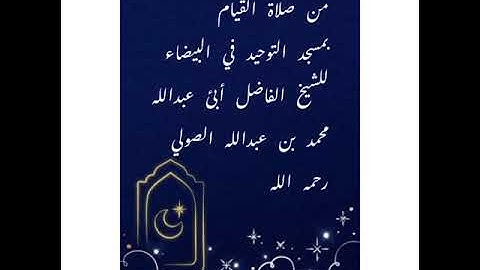 من صلاة القيام
بمسجد التوحيد في البيضاء
للشيخ الفاضل أبئ عبدالله
محمد بن عبدالله الصولي
رحمه الله